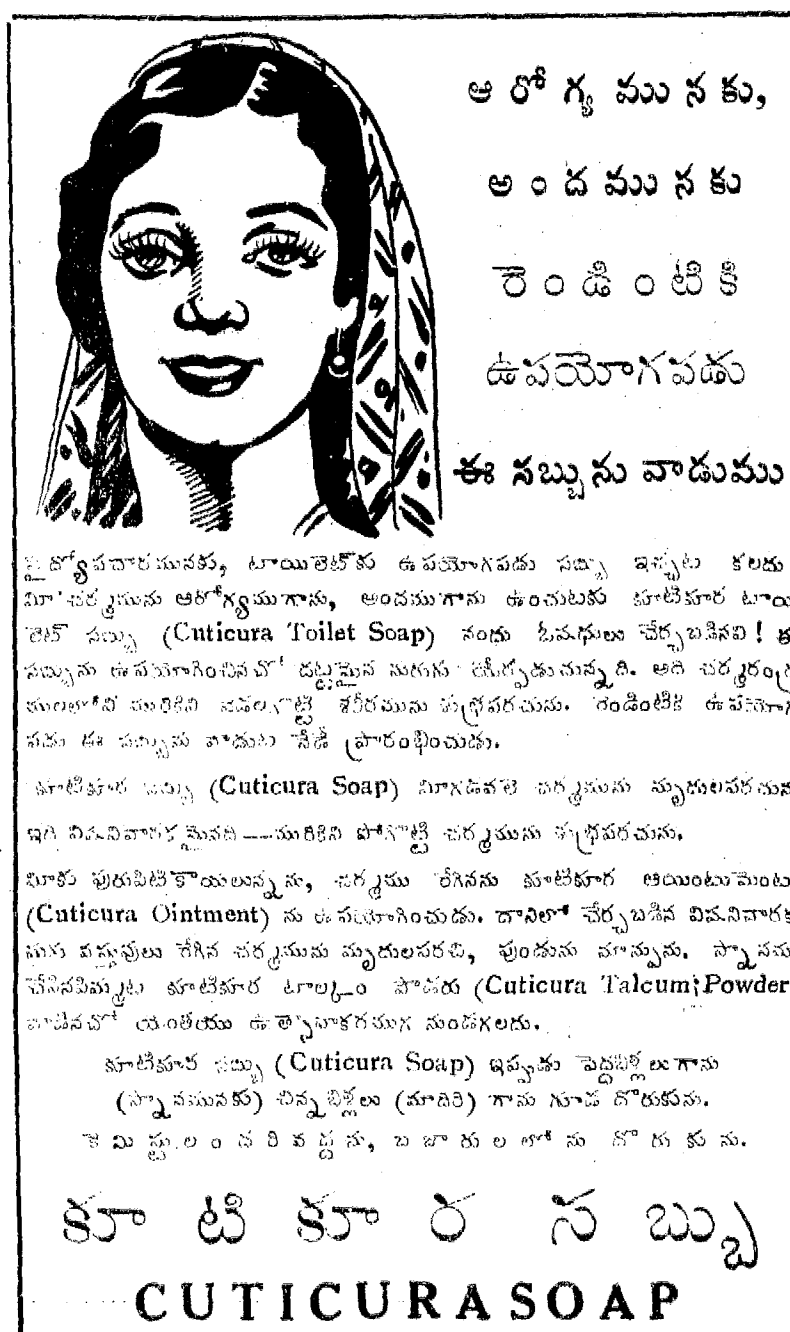 ఆరోగ్యమునకు,
అందమునకు
రెండింటికి
ఉపయోగపడు
ఈ సబ్బును వాడుము
వైద్యోపచారమునకు, టాయిలెట్‌కు ఉపయోగపడు సబ్బు ఇచ్చట కలదు
మీ చర్మమును ఆరోగ్యముగాను, అందముగాను ఉంచుటకు కూటికూర టాయి
లెట్ సబ్బు (Cuticura Toilet Soap) నందు ఓషధులు చేర్చబడినవి! ఈ
సబ్బును ఉపయోగించినచో దట్టమైన నురుగు యేర్పడుచున్నది. అది చర్మరంధ్ర
ములలోని మురికిని వెడలగొట్టి శరీరమును శుభ్రపరచును. రెండింటికి ఉపయోగ
పడు ఈ సబ్బును వాడుట నేడే ప్రారంభించుడు.
కూటికూర సబ్బు (Cuticura Soap) మీగడవలె చర్మమును మృదులపరచును
ఇది విషనివారకమైనది—మురికిని పోగొట్టి చర్మమును శుభ్రపరచును.
మీకు పురుపిటికాయలున్నను, చర్మము రేగినను కూటికూర ఆయింటుమెంటు
(Cuticura Ointment) ను ఉపయోగించుడు. దానిలో చేర్చబడిన విషనివారక
మగు వస్తువులు రేగిన చర్మమును మృదులపరచి, పుండును మాన్పును. స్నానము
చేసినపిమ్మట కూటికూర టాల్కం పౌడరు (Cuticura Talcum Powder
వాడినచో యెంతయు ఉత్సాహకరముగ నుండగలదు.
కూటికూర సబ్బు (Cuticura Soap) ఇప్పుడు పెద్దబిళ్లలుగాను
(స్నానమునకు) చిన్నబిళ్లలు (మాదిరి) గాను గూడ దొరుకును.
కెమిస్టులందరివద్దను, బజారులలోను దొరుకును.
కూటికూర సబ్బు
CUTICURA SOAP